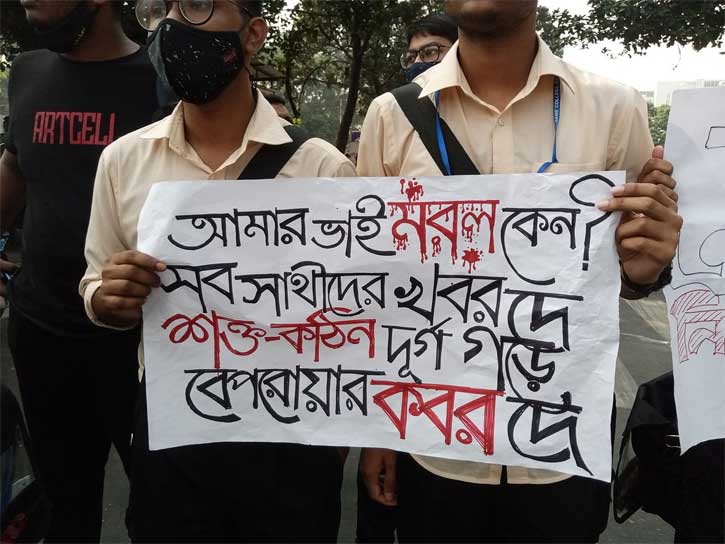 ARTCELL
আমার ভাই মরল কেন?
সব সাথীদের খবর দে
শক্ত-কঠিন দূর্গ গড়ে
বেপরোয়ার কবর দে